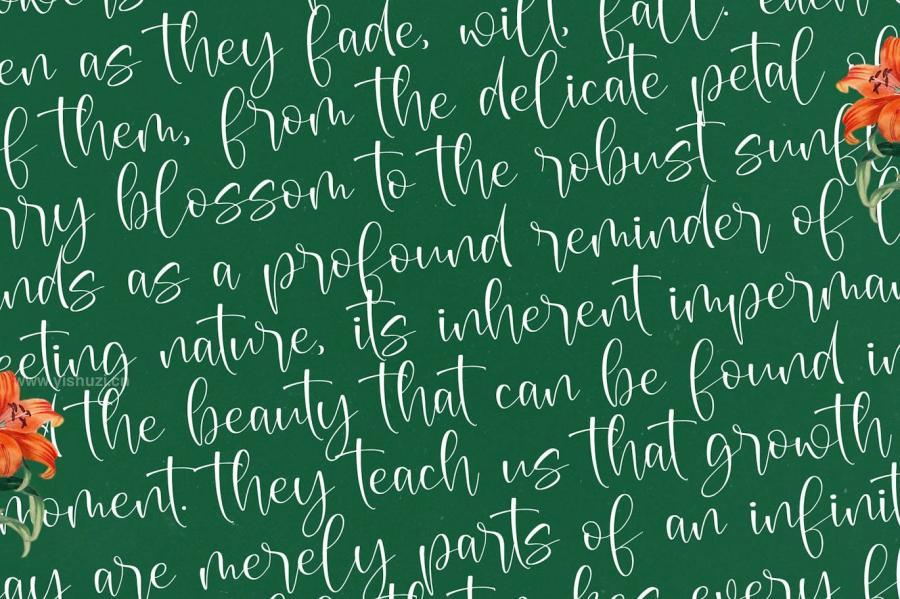 they fade, will, fall. each
en as they fade, will, fall.
f them, from the delicate petal
rry blossom to the robust sunf
nds as a profound reminder of
eeting nature, its inherent imperman
the beauty that can be found in
moment. they teach us that growth
ay are merely parts of an infinit
every
www.yishuzi.cn